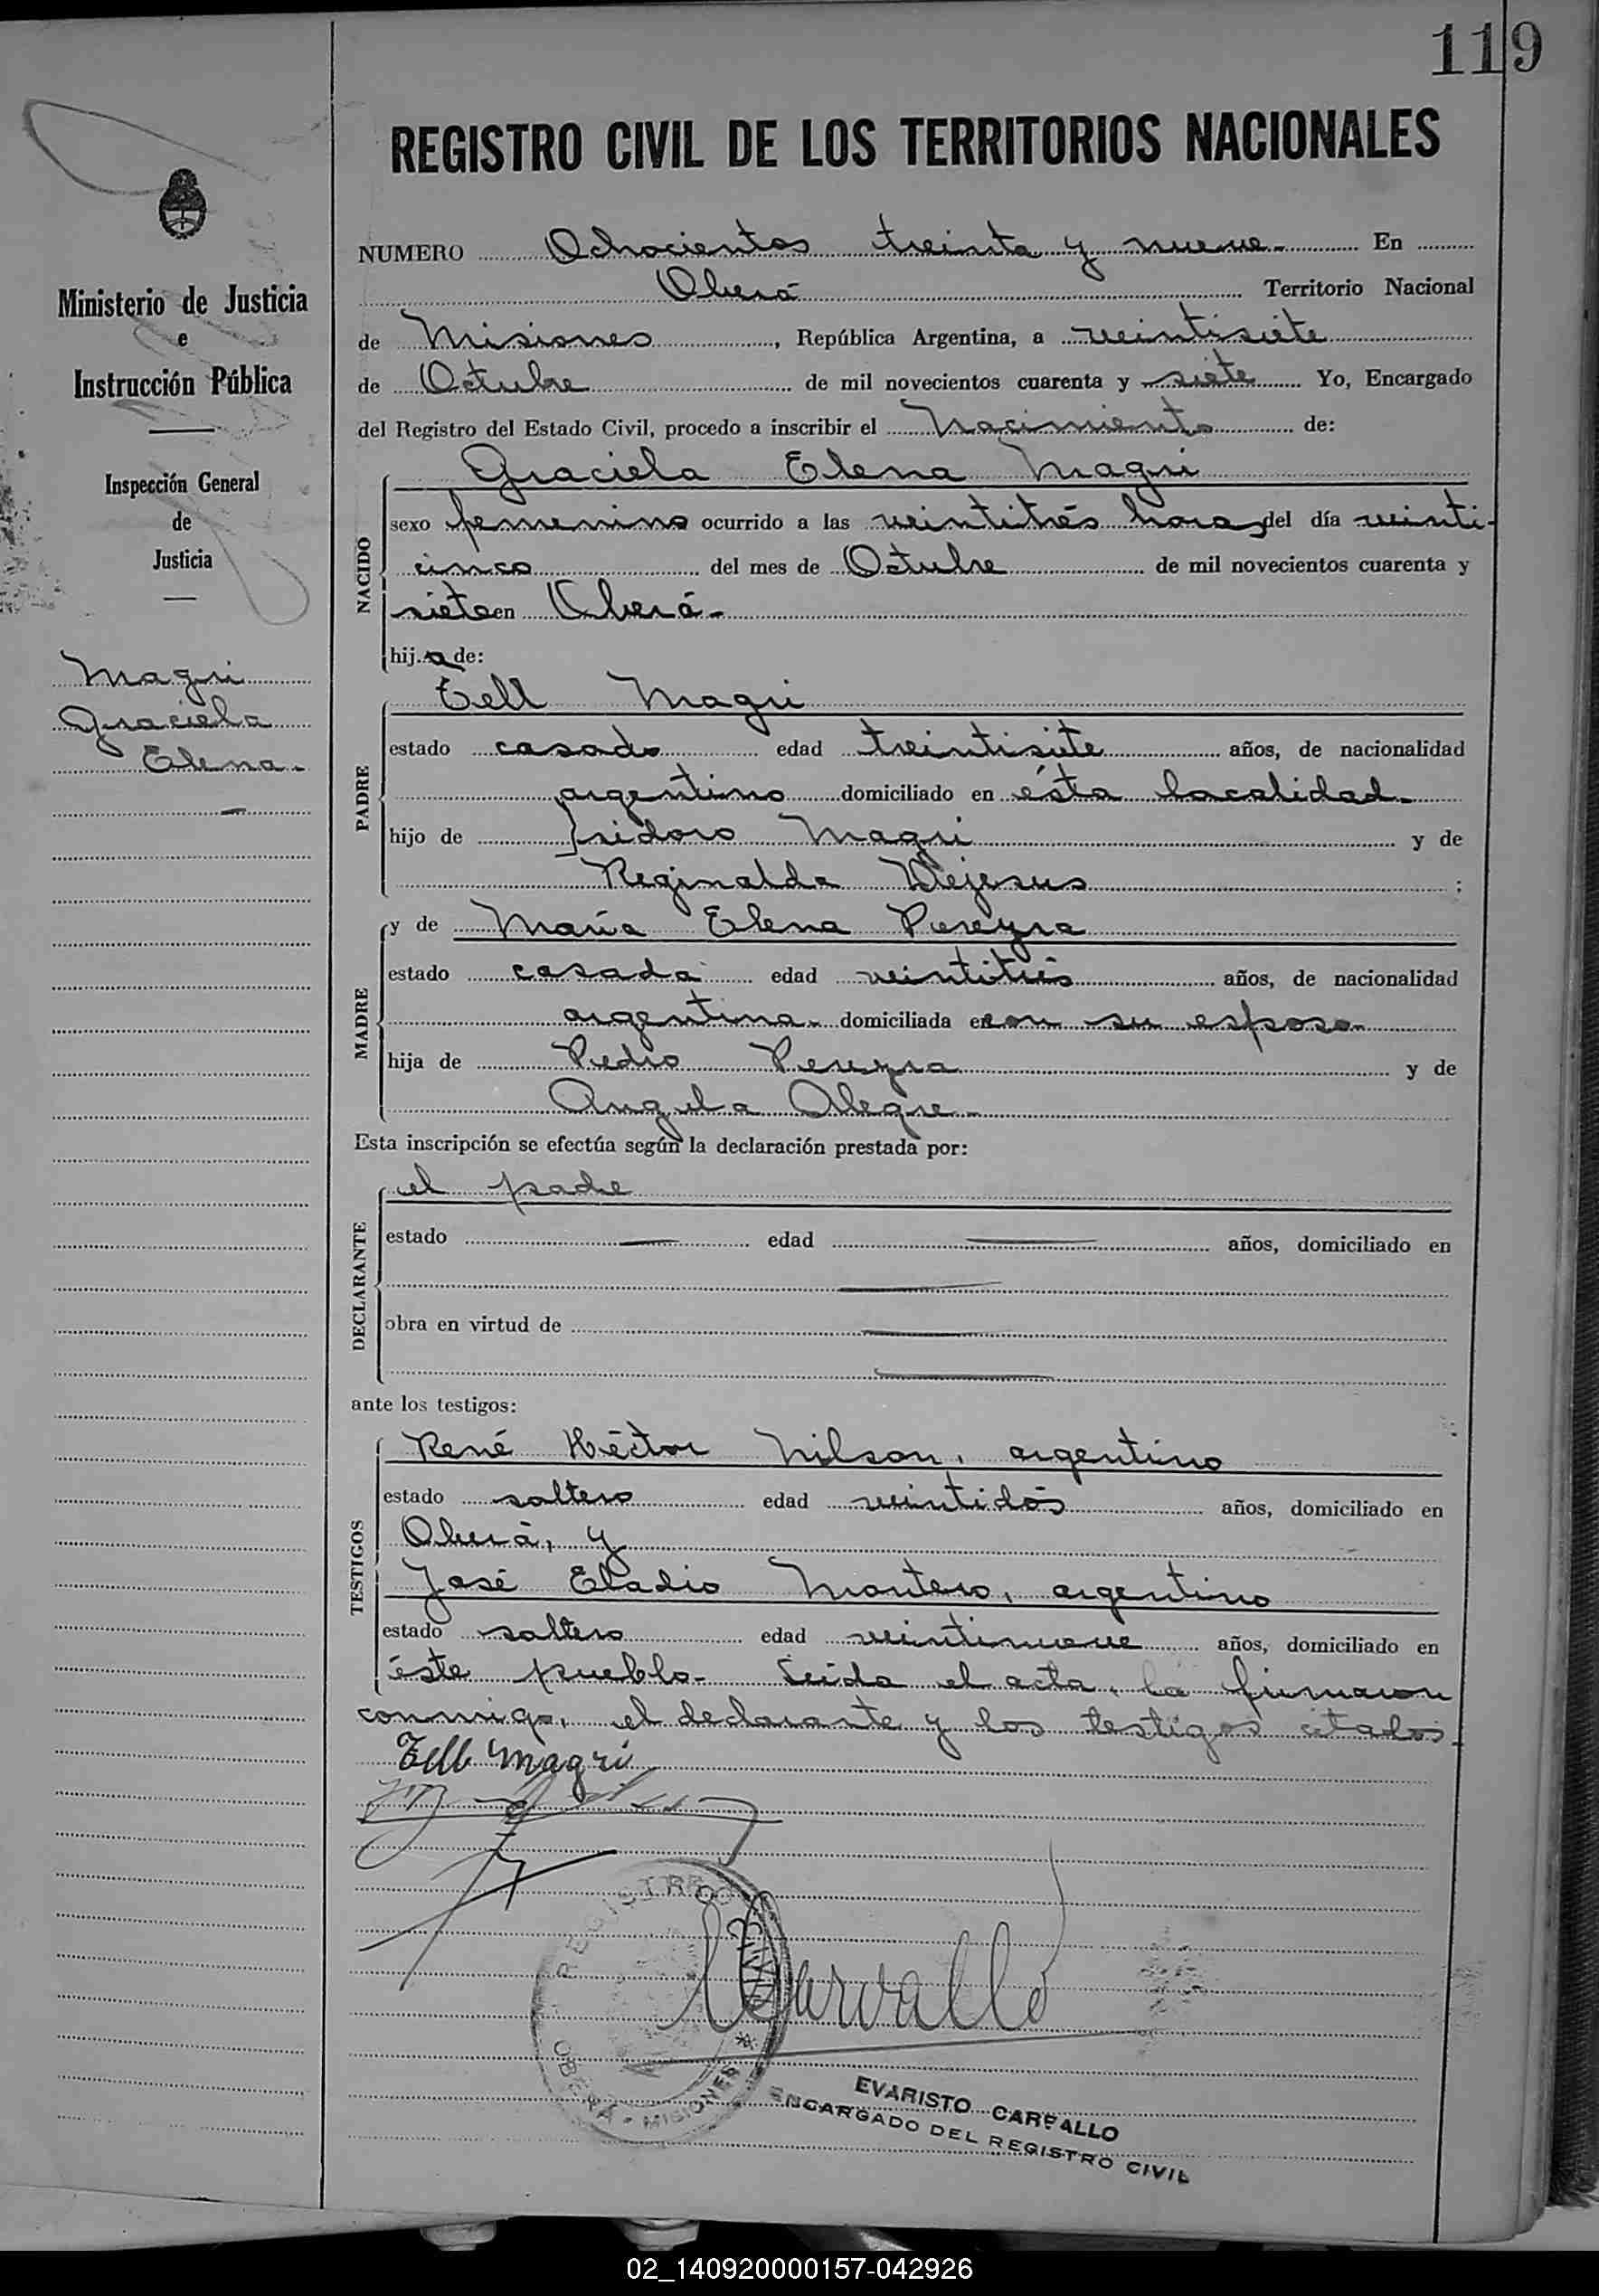 119
REGISTRO CIVIL DE LOS TERRITORIOS NACIONALES
Ministerio de Justicia
e
Instrucción Pública
Inspección General
de
Justicia
Magri
Graciela
Elena.
NUMERO Ochocientos treinta y nueve- En
Oberá Territorio Nacional
de Misiones, República Argentina, a veintisiete
de Octubre de mil novecientos cuarenta y siete Yo, Encargado
del Registro del Estado Civil, procedo a inscribir el Nacimiento de:
Graciela Elena Magri
NACIDO
sexo femenino ocurrido a las veintitrés horas del día veinti-
cinco del mes de Octubre de mil novecientos cuarenta y
siete en Oberá-
hija de:
Tell Magri
PADRE
estado casado edad treintisiete años, de nacionalidad
argentino domiciliado en ésta localidad-
hijo de Isidoro Magri y de
Reginalda Dejesus ;
y de María Elena Pereyra
MADRE
estado casada edad veintitrés años, de nacionalidad
argentina- domiciliada en con su esposo-
hija de Pedro Pereyra y de
Angela Alegre-
Esta inscripción se efectúa según la declaración prestada por:
el padre
DECLARANTE
estado — edad — años, domiciliado en
obra en virtud de —
ante los testigos:
René Héctor Nilson, argentino
TESTIGOS
estado soltero edad veintidós años, domiciliado en
Oberá, y
José Eladio Montero, argentino
estado soltero edad veintinueve años, domiciliado en
éste pueblo- Leida el acta, la firmaron
conmigo, el declarante y los testigos citados-
Tell Magri
Carvallo
REGISTRO CIVIL * OBERA - MISIONES *
EVARISTO CARVALLO
ENCARGADO DEL REGISTRO CIVIL
02_140920000157-042926